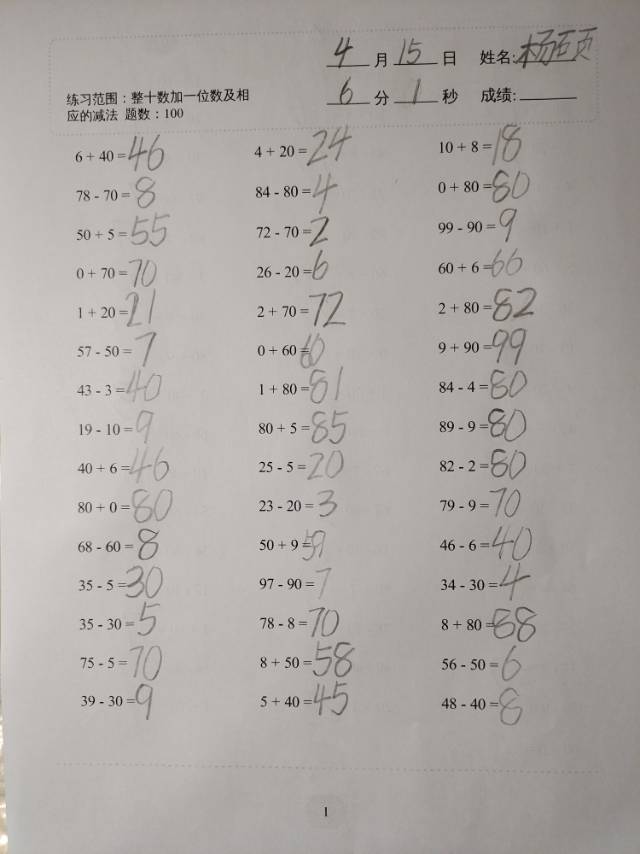 4 月 15 日 姓名:杨
6 分 1 秒 成绩:
练习范围：整十数加一位数及相
应的减法 题数：100
6 + 40 =46 4 + 20 =24 10 + 8 =18
78 - 70 =8 84 - 80 =4 0 + 80 =80
50 + 5 =55 72 - 70 =2 99 - 90 =9
0 + 70 =70 26 - 20 =6 60 + 6 =66
1 + 20 =21 2 + 70 =72 2 + 80 =82
57 - 50 =7 0 + 60 =60 9 + 90 =99
43 - 3 =40 1 + 80 =81 84 - 4 =80
19 - 10 =9 80 + 5 =85 89 - 9 =80
40 + 6 =46 25 - 5 =20 82 - 2 =80
80 + 0 =80 23 - 20 =3 79 - 9 =70
68 - 60 =8 50 + 9 =59 46 - 6 =40
35 - 5 =30 97 - 90 =7 34 - 30 =4
35 - 30 =5 78 - 8 =70 8 + 80 =88
75 - 5 =70 8 + 50 =58 56 - 50 =6
39 - 30 =9 5 + 40 =45 48 - 40 =8
1